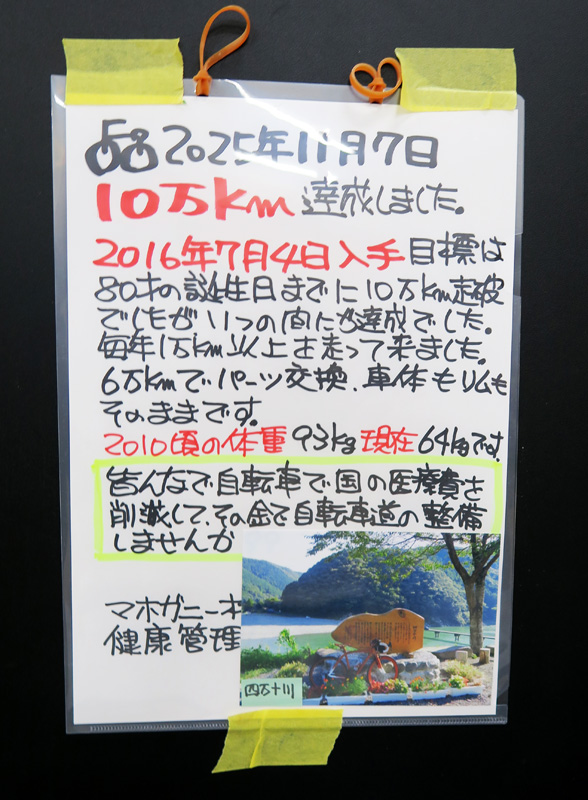 2025年11月7日
10万km達成しました。
2016年7月4日入手 目標は
80才の誕生日までに10万km走破
でしたがいつの間にか達成でした。
毎年1万km以上を走って来ました。
6万kmでパーツ交換、車体もリムも
そのままです。
2010頃の体重93kg現在64kgです。
皆んなで自転車で国の医療費を
削減して、その金で自転車道の整備
しませんか
マホガニー本
健康管理
四万十川